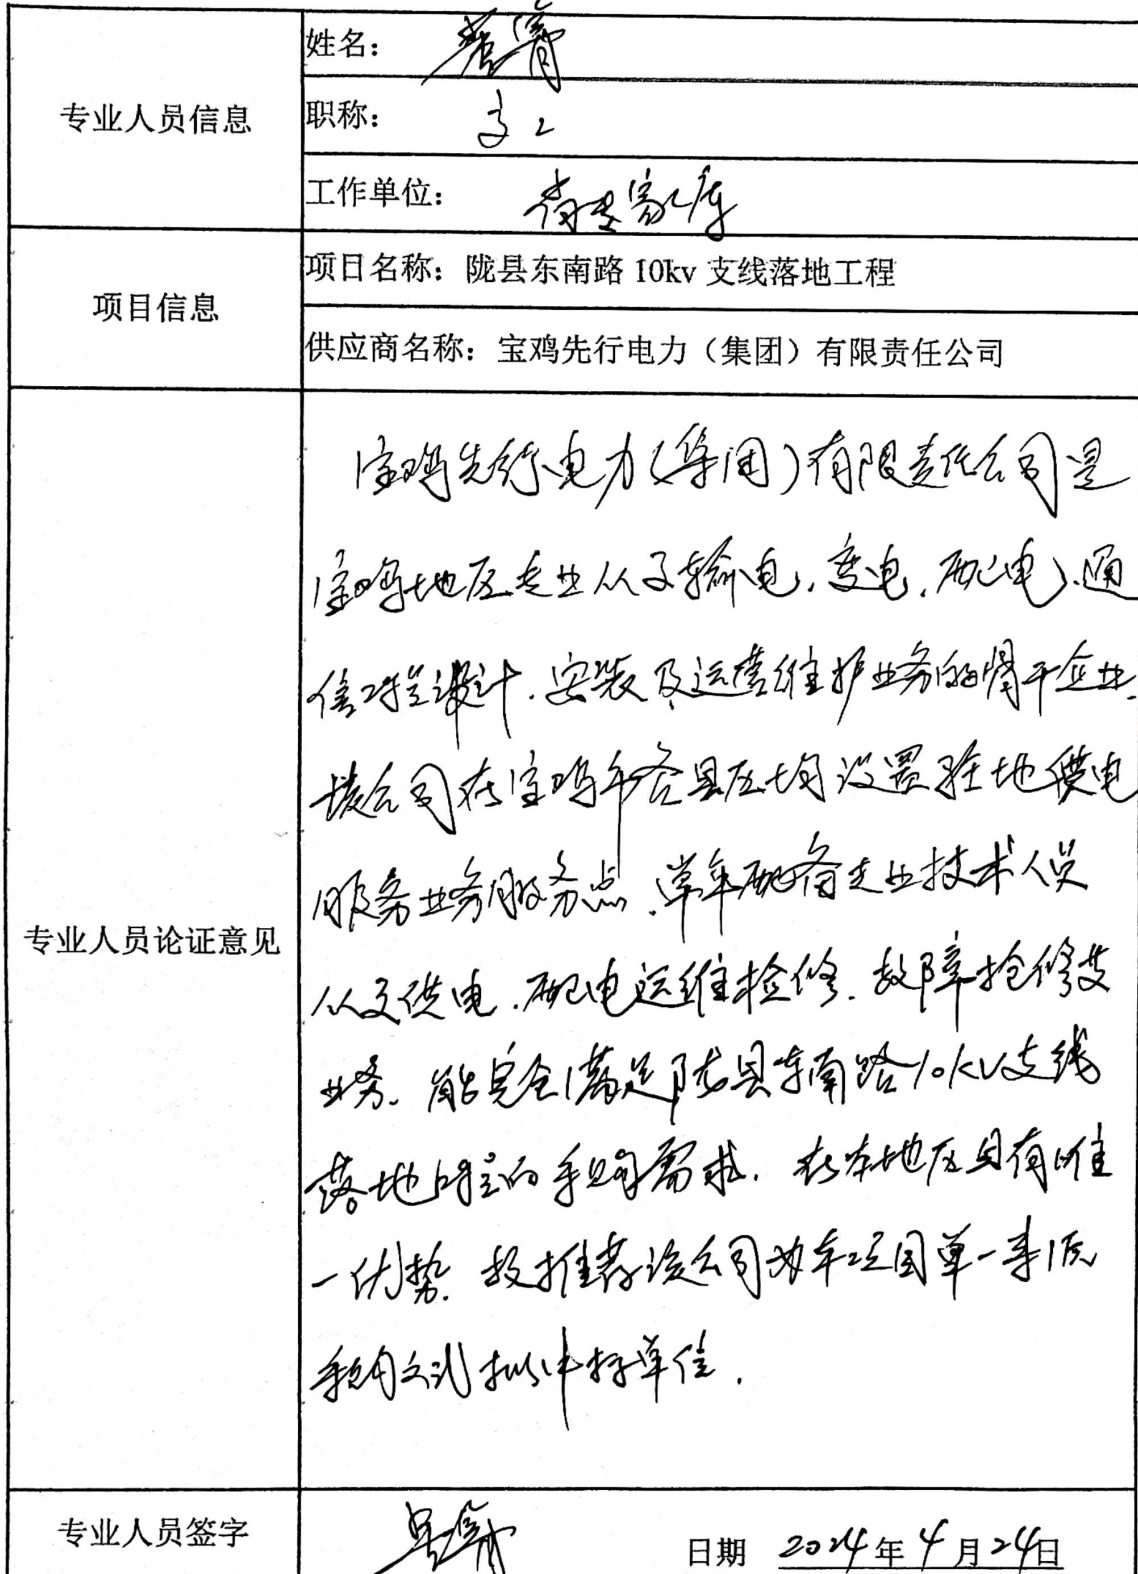 姓名：
专业人员信息
职称：高工
工作单位：省专家库
项目信息
项目名称：陇县东南路 10kv 支线落地工程
供应商名称：宝鸡先行电力（集团）有限责任公司
专业人员论证意见
宝鸡先行电力(集团)有限责任公司是
宝鸡地区专业从事输电、变电、配电、通
信工程设计、安装及运营维护业务的骨干企业,
该公司在宝鸡市各县区均设置驻地供电
服务业务服务点,常年配备专业技术人员
从事供电、配电运维检修、故障抢修等
业务。能完全满足陇县东南路10kV支线
落地工程的采购需求。在本地区具有唯
一优势。故推荐该公司为本项目单一来源
采购方式拟中标单位.
专业人员签字
日期 2024年4月24日